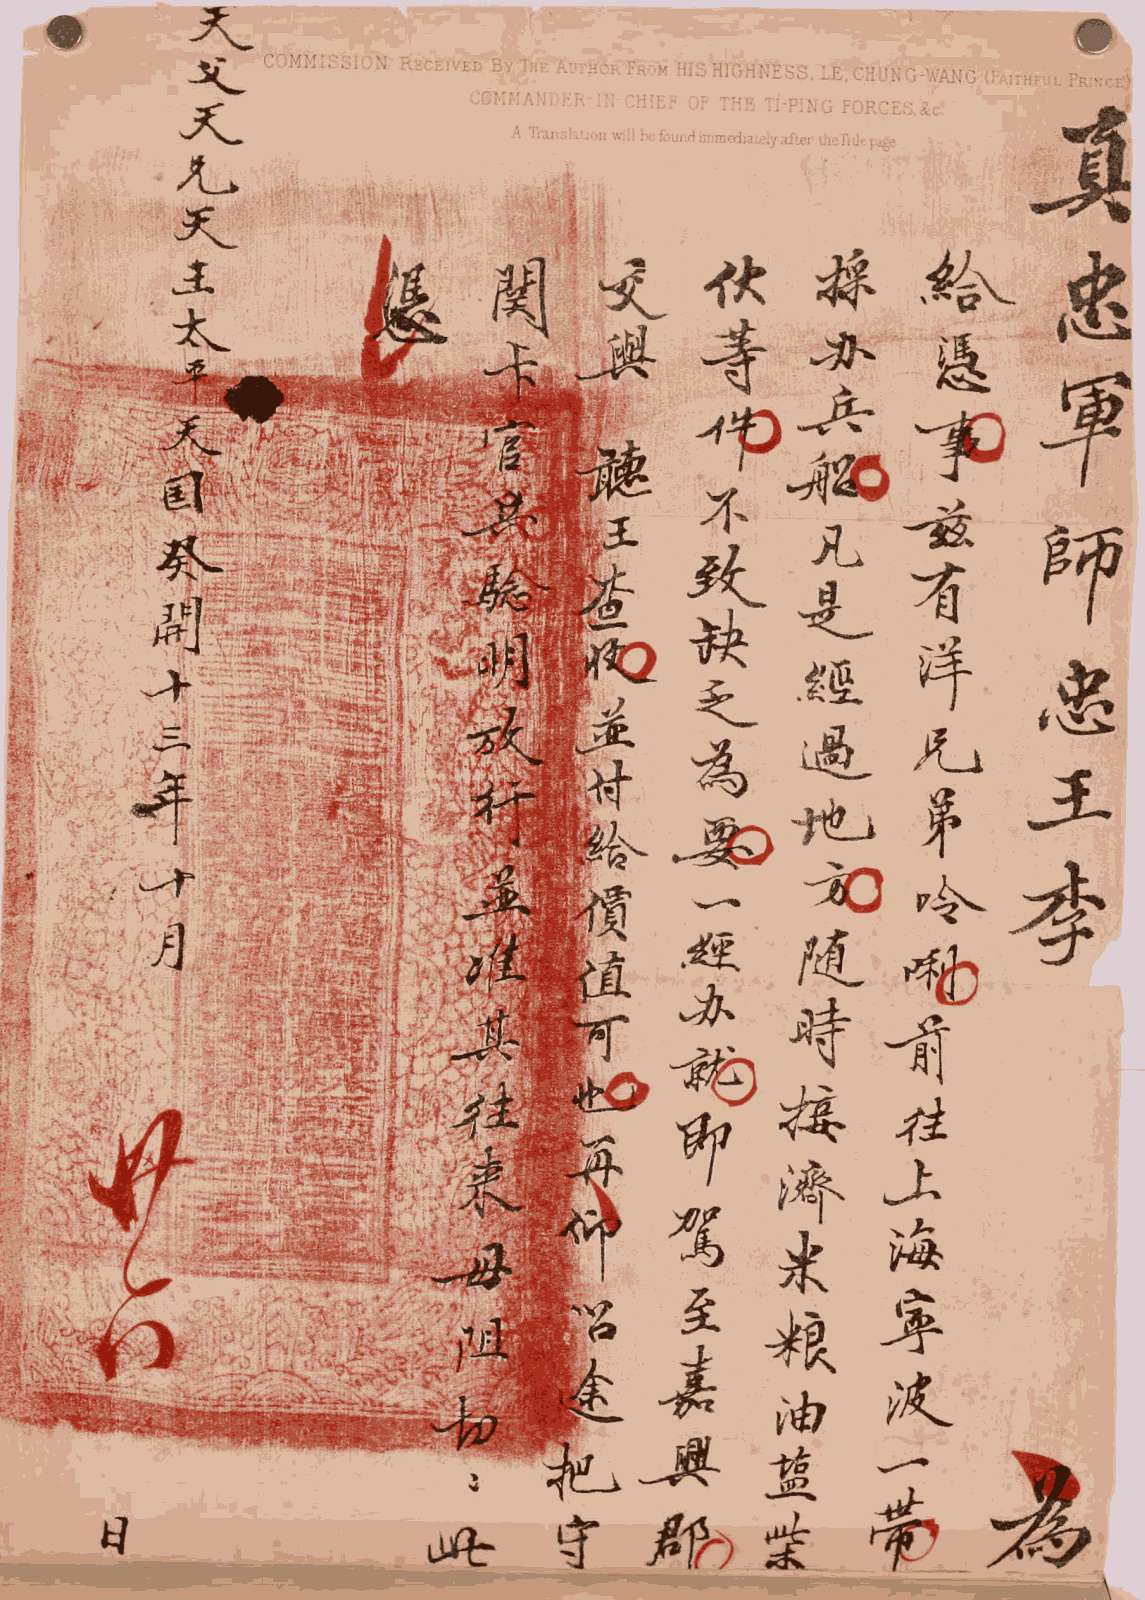 COMMISSION RECEIVED BY THE AUTHOR FROM HIS HIGHNESS, LE, CHUNG-WANG (FAITHFUL PRINCE)
COMMANDER-IN-CHIEF OF THE TI-PING FORCES, &c.
A Translation will be found immediately after the Title page
真忠軍師忠王李 為
給憑事茲有洋兄弟呤唎前往上海寧波一帶
採办兵船凡是經過地方随時接濟米粮油塩柴
伙等件不致缺乏為要一經办就即駕至嘉興郡
交與 聽王查收並付給價值可也再仰沿途把守
関卡官兵驗明放行並准其往来毋阻切〻此
憑
天父天兄天王太平天囯癸開十三年十月 日